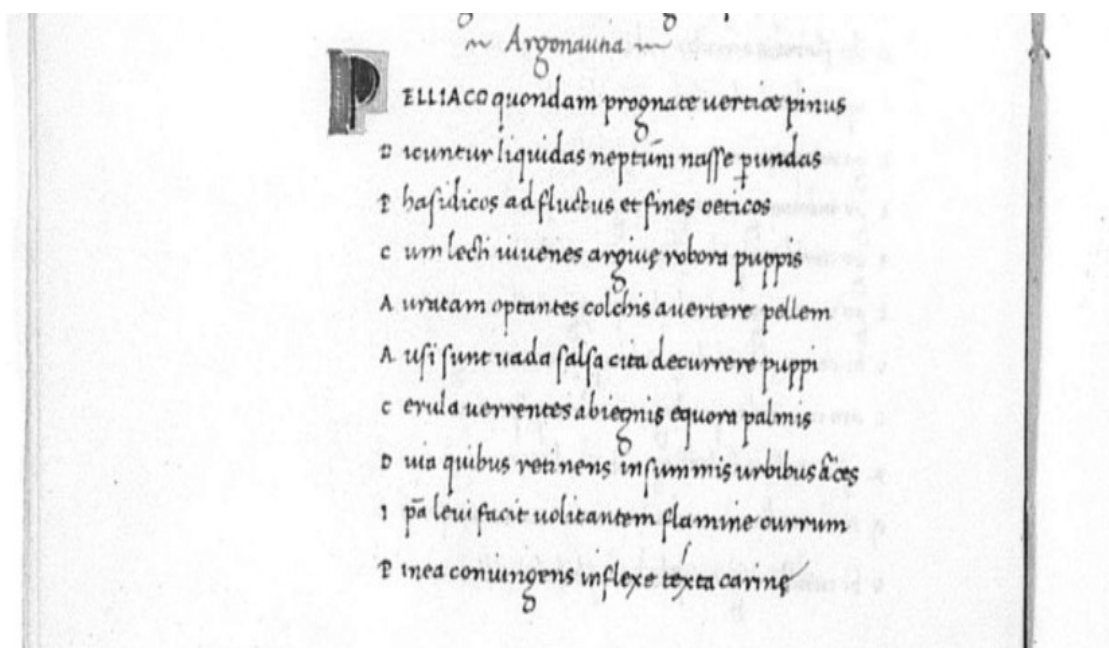 Argonautia
PELLIACO quondam prognate uertice pinus
Dicuntur liquidas neptūni nasse ꝑ undas
Phasidicos ad fluctus et fines oeticos
Cum lecti iuuenes argiuę robora puppis
Auratam optantes colchis auertere pellem
Ausi sunt uada salsa cita decurrere puppi
Cerula uerrentes abiegnis equora palmis
Diuia quibus retinens in summis urbibus
Ipā leui facit uolitantem flamine currum
Pinea coniungens inflexe texta carinę